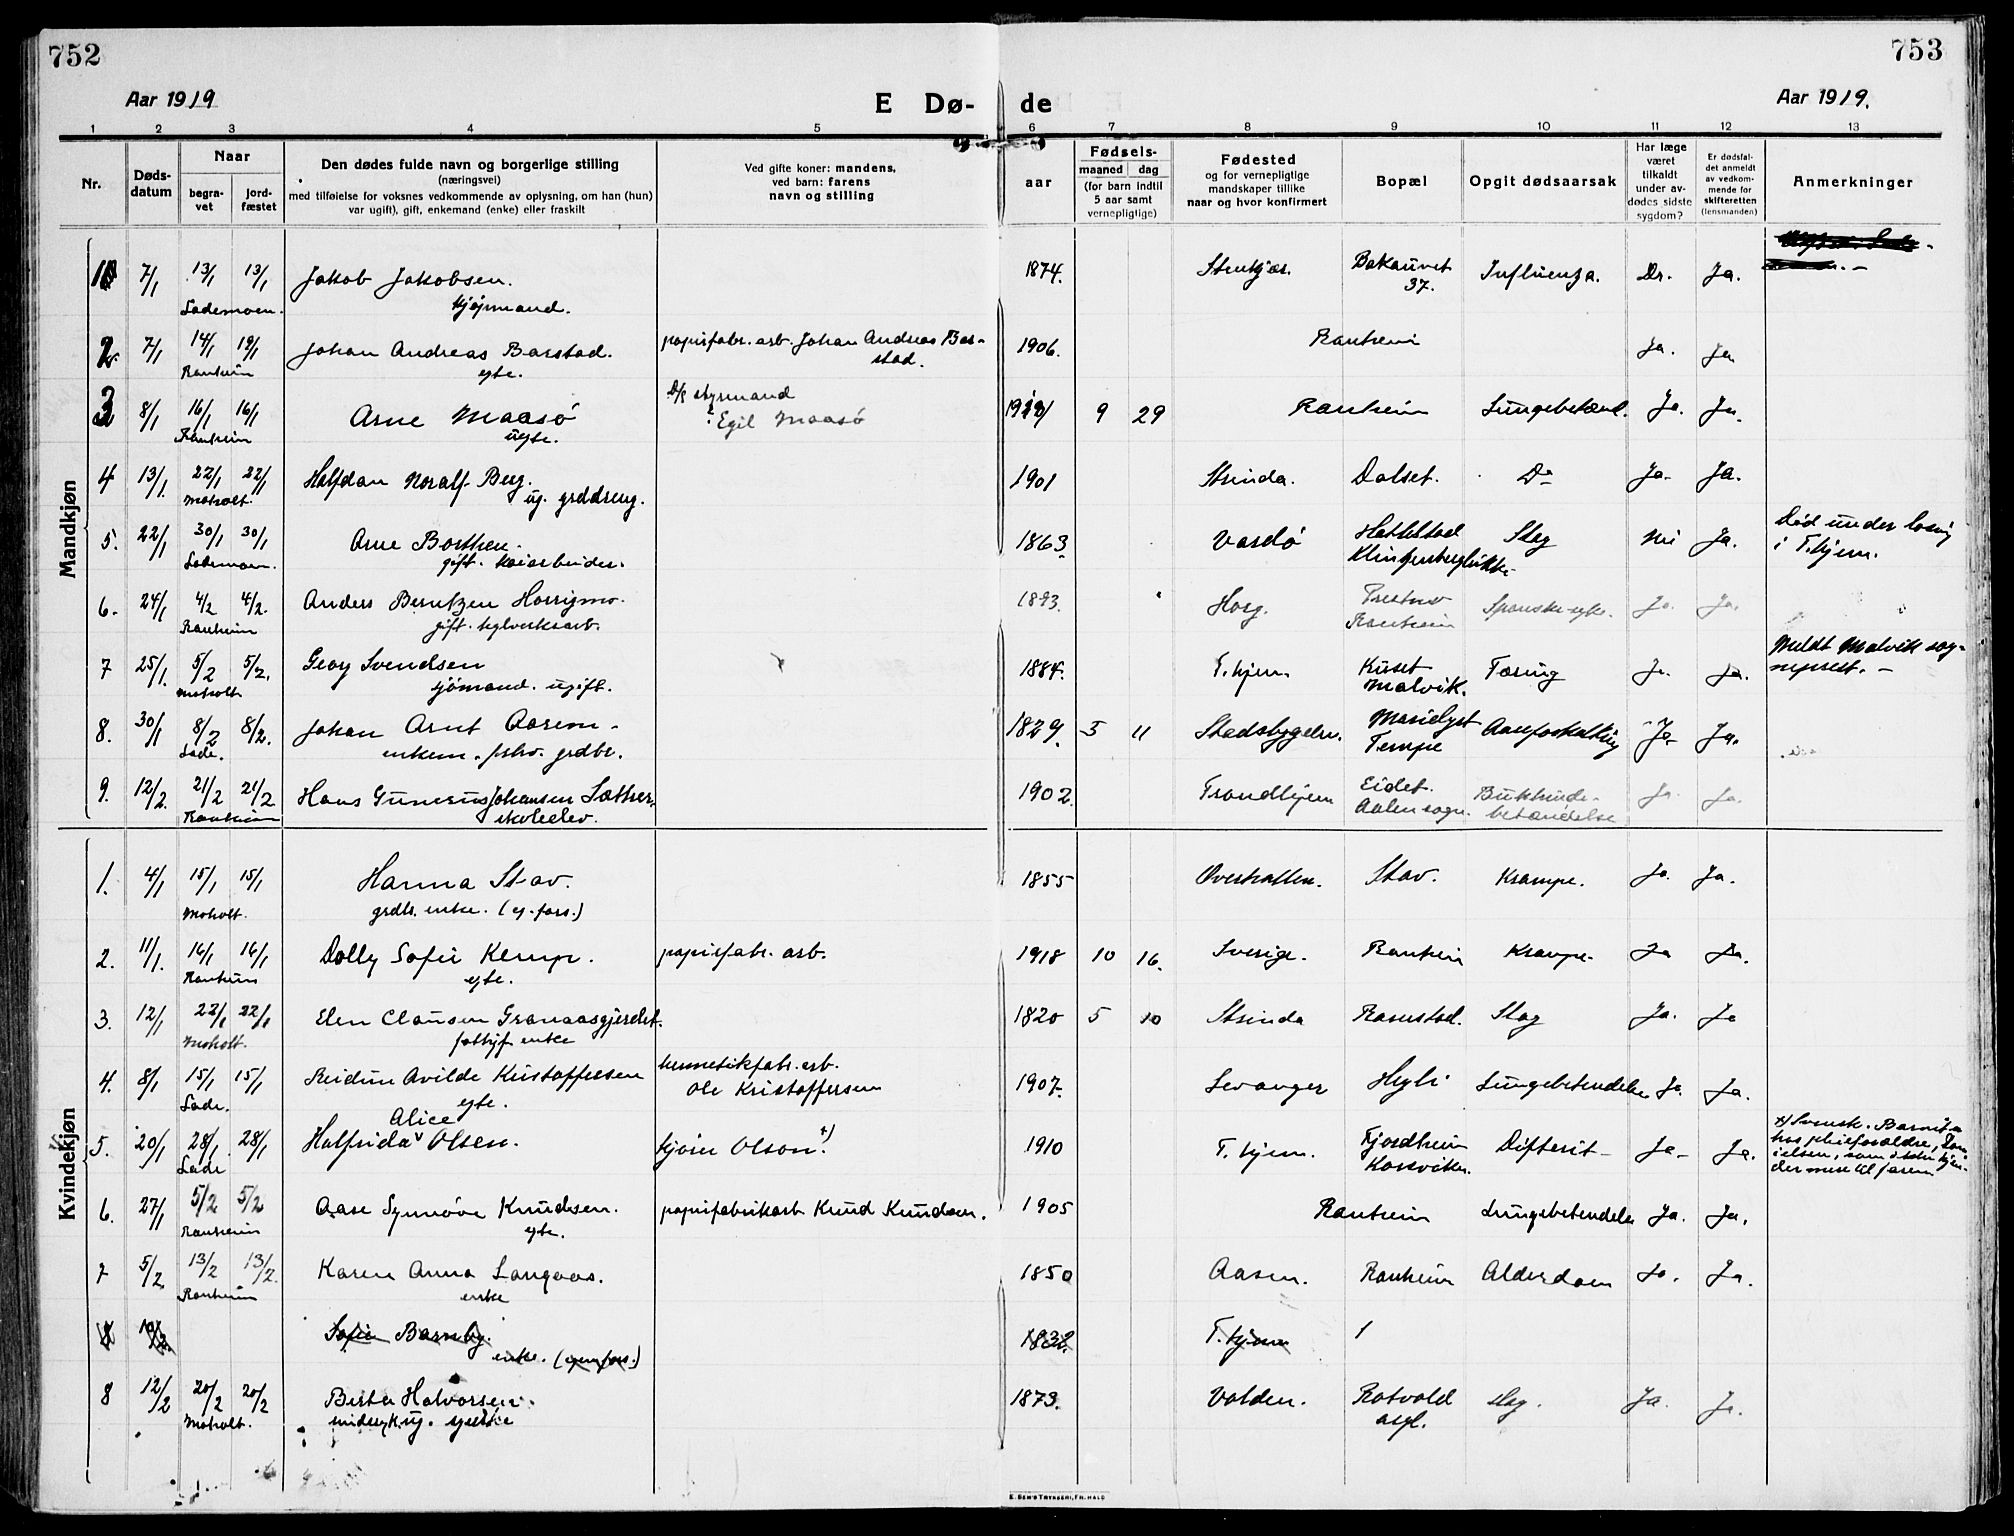 752
753
Aar 1919
E Dø- de
Aar 1919.
1 2 3 4 5 6 7 8 9 10 11 12 13
Nr.
Døds-
datum
Naar
begra-
vet
jord-
fæstet
Den dødes fulde navn og borgerlige stilling
(næringsvei)
med tilføielse for voksnes vedkommende av oplysning, om han (hun)
var ugift), gift, enkemand (enke) eller fraskilt
Ved gifte koner: mandens,
ved barn: farens
navn og stilling
aar
Fødsels-
maaned dag
(for barn indtil
5 aar samt
vernepligtige)
Fødested
og for vernepligtige
mandskaper tillike
naar og hvor konfirmert
Bopæl
Opgit dødsaarsak
Har læge
været
tilkaldt
under av-
dødes sidste
sygdom?
Er dødsfal-
det anmeldt
av vedkom-
mende for
skifteretten
(lensmanden)
Anmerkninger
Mandkjøn
1 7/1 13/1 13/1 Jakob Jakobsen. 1874. Stenkjær. Bakaunet Influenza. Dr. Ja.
Lademoen. kjøpmand. 37.
2. 7/1 14/1 19/1 Johan Andreas Barstad. papirfabr. arb. Johan Andreas Bar- 1906. Ranheim Ja. Ja
Ranheim egte. stad.
3 8/1 16/1 16/1 Arne Maasø styrmand 9 29 Ranheim Lungebetænd. Ja. Ja.
Ranheim ugte. Egil Maasø
4 13/1. 22/1 22/1 Halfdan Noralf Berg. 1901 Strinda. Dalset. Do Ja- Ja.
Moholt. ug. grddreng.
5. 22/1 30/1 30/1 Arne Borthen. 1863. Vardö Hatlestad Slag Nei Ja. Død under losnig
Lademoen. gift. kaiarbeider. i T.hjem.
6. 24/1 4/2 4/2. Anders Berntzen Horrigmo. 1893. Horg. Spanskesyke. Ja. Ja.
Ranheim gift. teglverksarb. Ranheim
7 25/1. 5/2 5/2. Georg Svendsen 1884. T.hjem Malvik. Tæring Ja. Ja. Meldt Malvik sog-
Moholt sjömand. ugift. neprest. -
8. 30/1 8/2 8/2. Johan Arnt Aarem 1829. 5 11 Stadsbygden. Marielyst Aareforkalkning Ja- Ja.
Lade. enkem. fhv. grdbr. Tempe
9. 12/2. 21/2 21/2 Hans Gunerius Johansen Sæther. 1902. Trondhjem Eidet. Bukhinde- Ja. Ja.
Ranheim skoleelev. Aalen sogn. betændelse
Kvindekjøn
1. 4/1 15/1 15/1 Hanna Stav. 1855 Overhallen. Stav. Krampe. Ja. Ja.
Moholt. grdbr. enke. (eg. fors.)
2. 11/1. 16/1 16/1 Dolly Sofie Kemp. papirfabr. arb. 1918 10 16. Sverige. Ranheim Krampe. Ja Ja.
Ranheim egte.
3. 12/1 22/1 22/1 Elen Clausen Granaasgjerdet. 1820 5 10 Strinda Slag Ja. Ja
Moholt. enke
4. 8/1 15/1 15/1 Reidun Avilde Kristoffersen hermetikfabr. arb. 1907. Levanger Lungebetændelse Ja. Ja.
Lade. egte. Ole Kristoffersen
Alice
5. 20/1 28/1 28/1 Halfrida Olsen. kjører Olson +) 1910 T. hjem. Fjordheim Difterit- Ja- Ja. +) Svensk. Barnet
Lade Korsviken. hos pleieforældre,
som ikke kjen-
der mere til faren
6. 27/1 5/2 5/2 Aase Synnöve Knudsen. papirfabrikarb Knud Knudsen. 1905 Ranheim Lungebetændelse Ja. Ja.
Ranheim egte.
7 5/2 13/2 13/2. Karen Anna Langaas. 1850 Aasen. Ranheim Alderdom Ja. Ja.
Ranheim enke
8 Sofie Barnby. 1832. T. hjem
enke. (egen fors.)
8 12/2 20/2 20/2 Berta Halvorsen. 1873. Valden. Rotvold Slag. Ja. Ja.
Moholt. asyl.
E. SEM'S TRYKKERI, FR.HALD